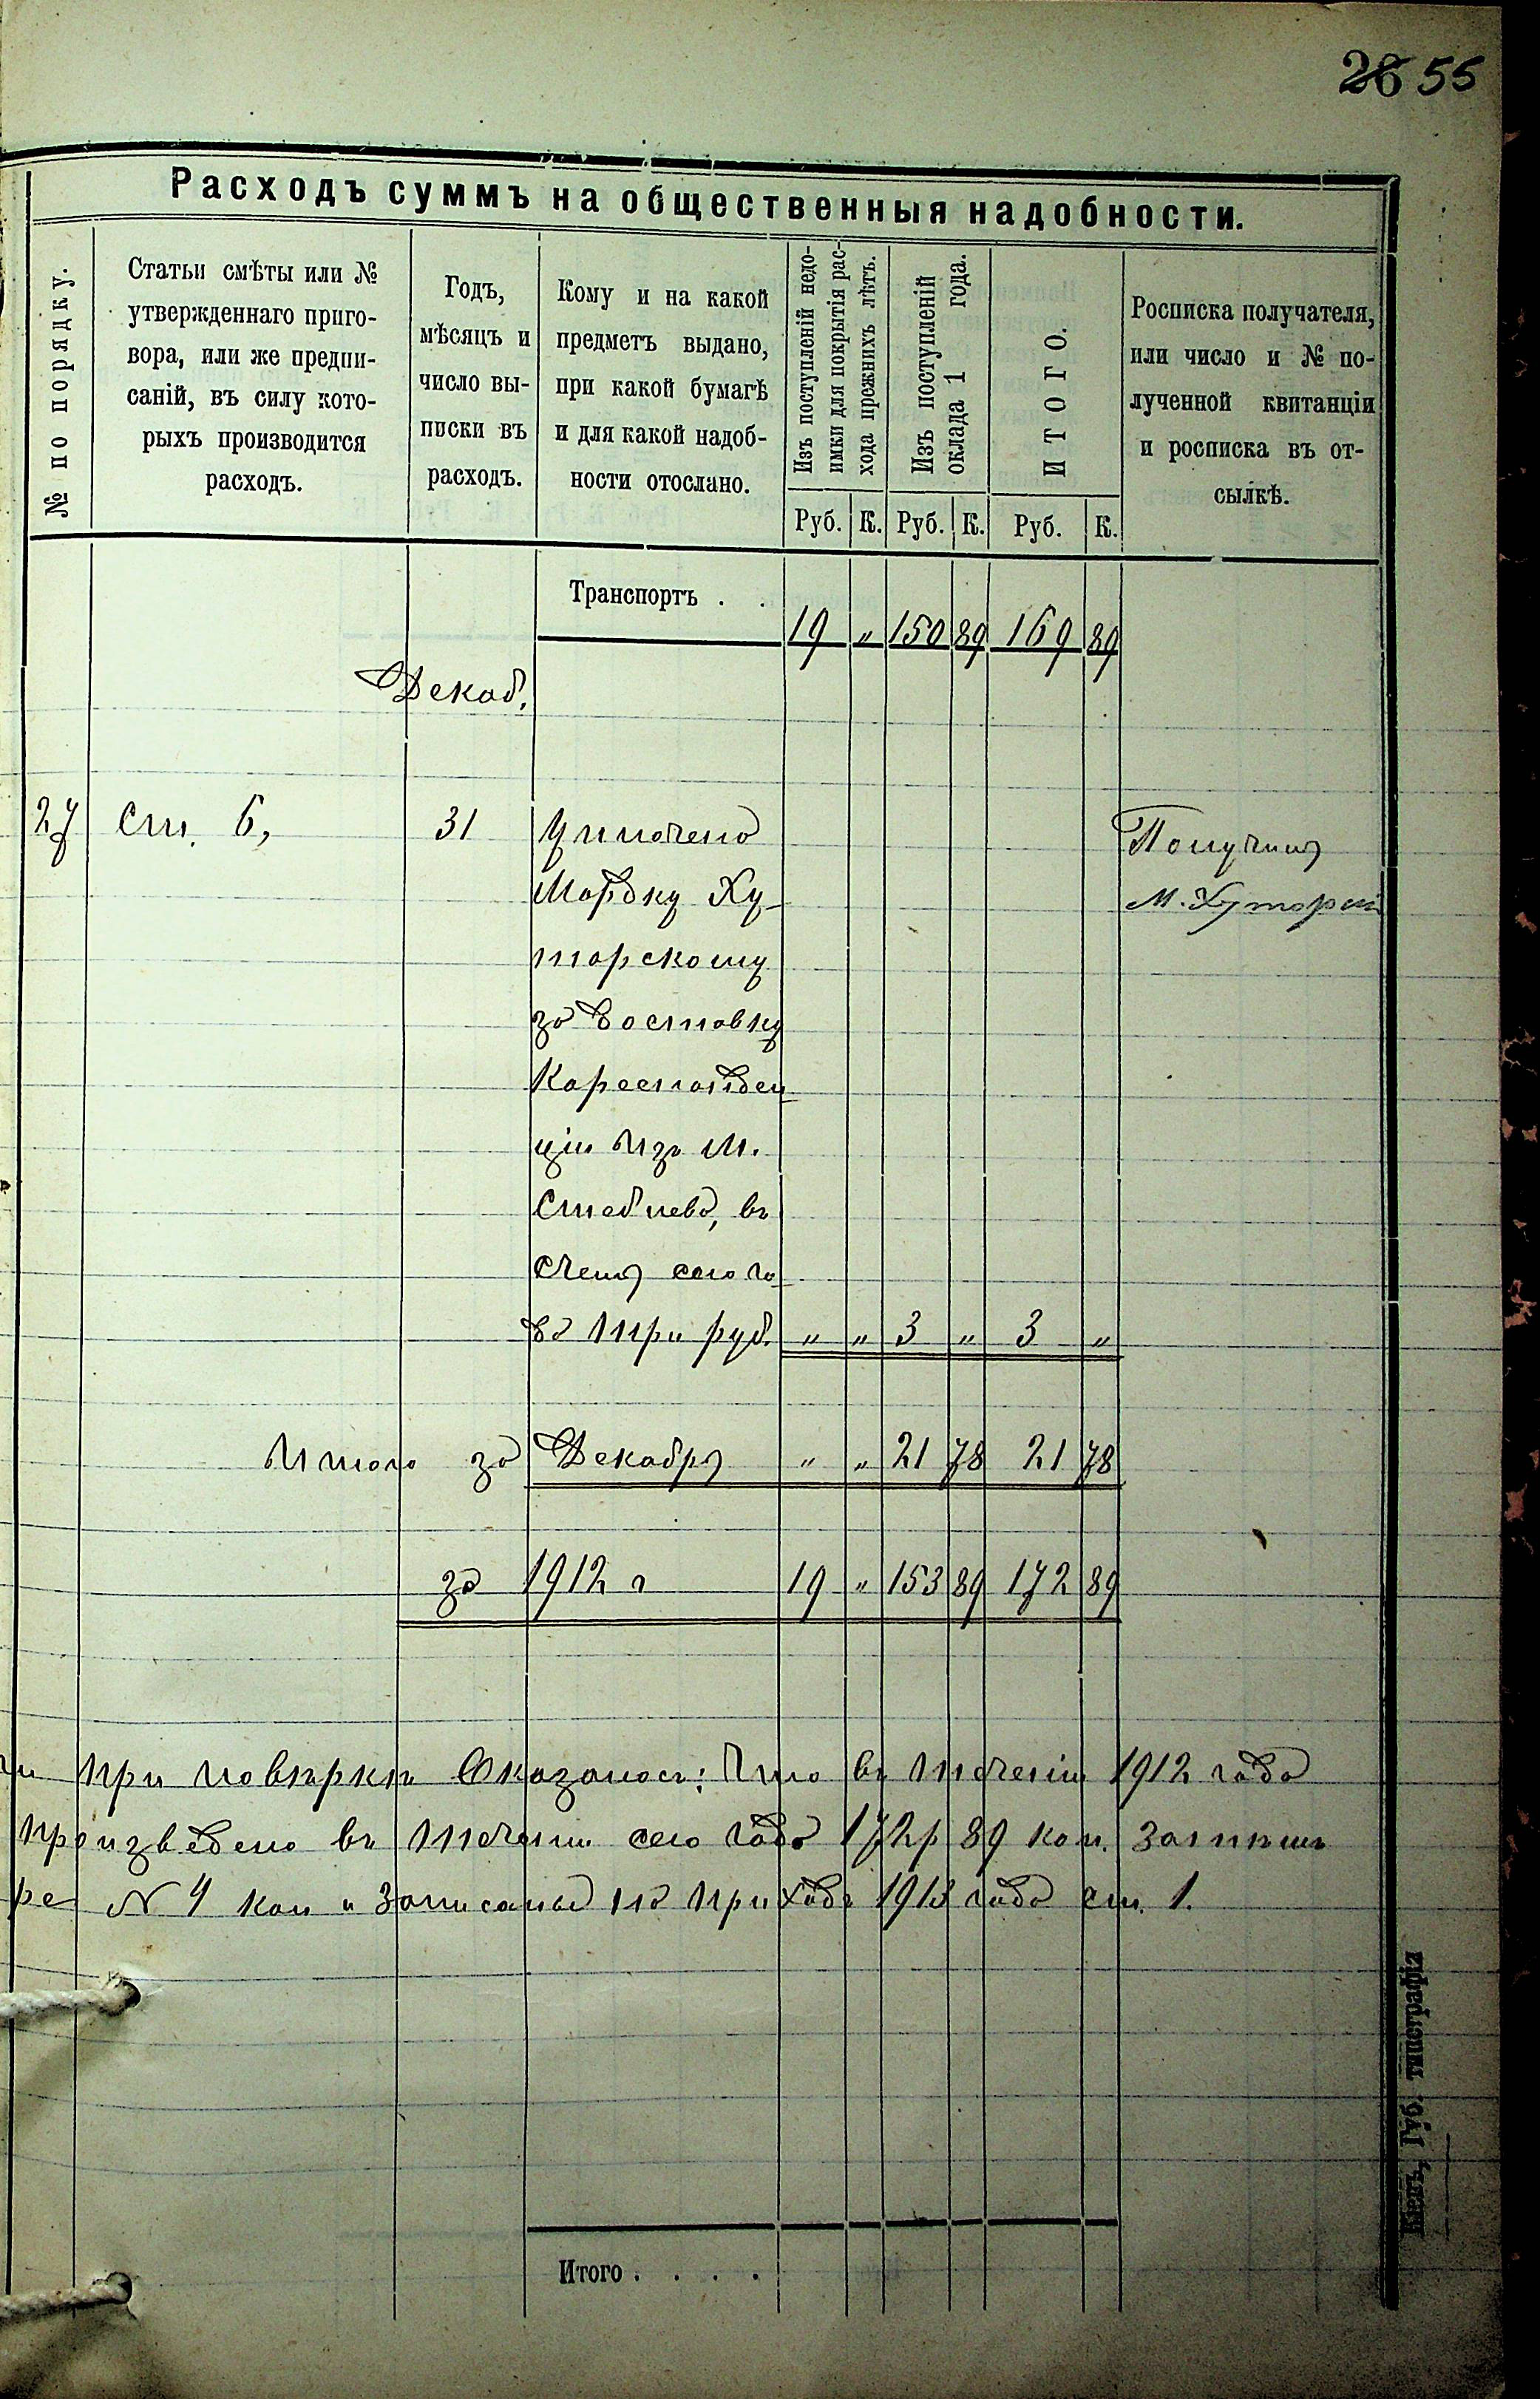 26 55
Расходъ суммъ на общественныя надобности.
№ по порядку.
Статьи смѣты или №
утвержденнаго приго-
вора, или же предпи-
саній, въ силу кото-
рыхъ производится
расходъ.
Годъ,
мѣсяцъ и
число вы-
писки въ
расходъ.
Кому и на какой
предметъ выдано,
при какой бумагѣ
и для какой надоб-
ности отослано.
Изъ поступленій недо-
имки для покрытія рас-
хода прежнихъ лѣтъ.
Изъ поступленій
оклада 1 года.
ИТОГО.
Росписка получателя,
или число и № по-
лученной квитанціи
и росписка въ от-
сылкѣ.
Руб. К. Руб. К. Руб. К.
Транспортъ . . 19 „ 150 89 169 89
Декаб.
27 Ст. 6, 31 Уплочено Получилъ
Мордку Ху- М. Хуторскій
торскому
за доставку
Кореспонден
ціи изъ м.
Стеблева, въ
счетъ сего го
да три руб. „ „ 3 „ 3 „
Итого за Декабрь „ „ 21 78 21 78
за 1912 г 19 „ 153 89 172 89
при повѣркѣ Оказалось: Что въ теченіи 1912 года
произведено въ теченіи сего года 172 р 89 коп. Затѣмъ
ре № 4 коп и Записаны по приходу 1913 года ст. 1.
Итого . . . .
Кіевъ, Губ. типографія